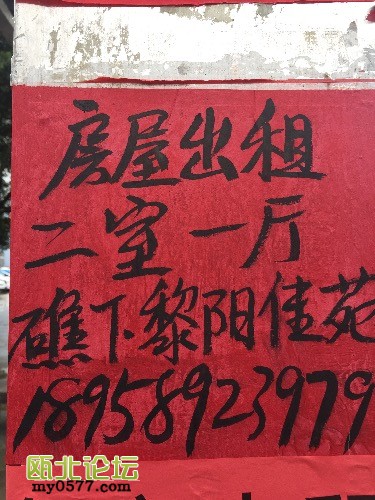 房屋出租
二室一厅
礁下黎阳佳苑
18958923979
瓯北论坛
my0577.com